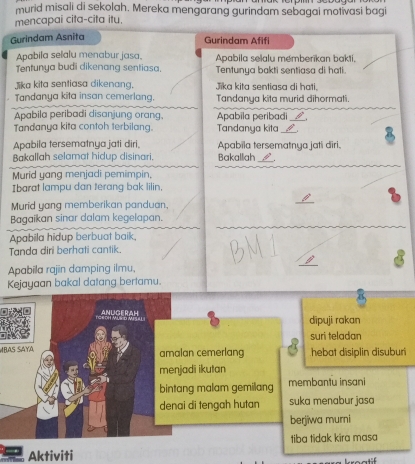 murid misali di sekolah. Mereka mengarang gurindam sebagai motivasi bagi
mencapai cita-cita itu.
Gurindam Asnita
Apabila selalu menabur jasa,
Tentunya budi dikenang sentiasa.
Jika kita sentiasa dikenang,
Tandanya kita insan cemerlang.
Apabila peribadi disanjung orang,
Tandanya kita contoh terbilang.
Apabila tersematnya jati diri,
Bakallah selamat hidup disinari.
Murid yang menjadi pemimpin,
Ibarat lampu dan terang bak lilin.
Murid yang memberikan panduan,
Bagaikan sinar dalam kegelapan.
Apabila hidup berbuat baik,
Tanda diri berhati cantik.
Apabila rajin damping ilmu,
Kejayaan bakal datang bertamu.
Gurindam Afifi
Apabila selalu memberikan bakti,
Tentunya bakti sentiasa di hati.
Jika kita sentiasa di hati,
Tandanya kita murid dihormati.
Apabila peribadi
Tandanya kita
Apabila tersematnya jati diri,
Bakallah
BM1
ANUGERAH
TOKOH MURID MISALI
MBAS SAYA
amalan cemerlang
menjadi ikutan
bintang malam gemilang
denai di tengah hutan
dipuji rakan
suri teladan
hebat disiplin disuburi
membantu insani
suka menabur jasa
berjiwa murni
tiba tidak kira masa
Aktiviti